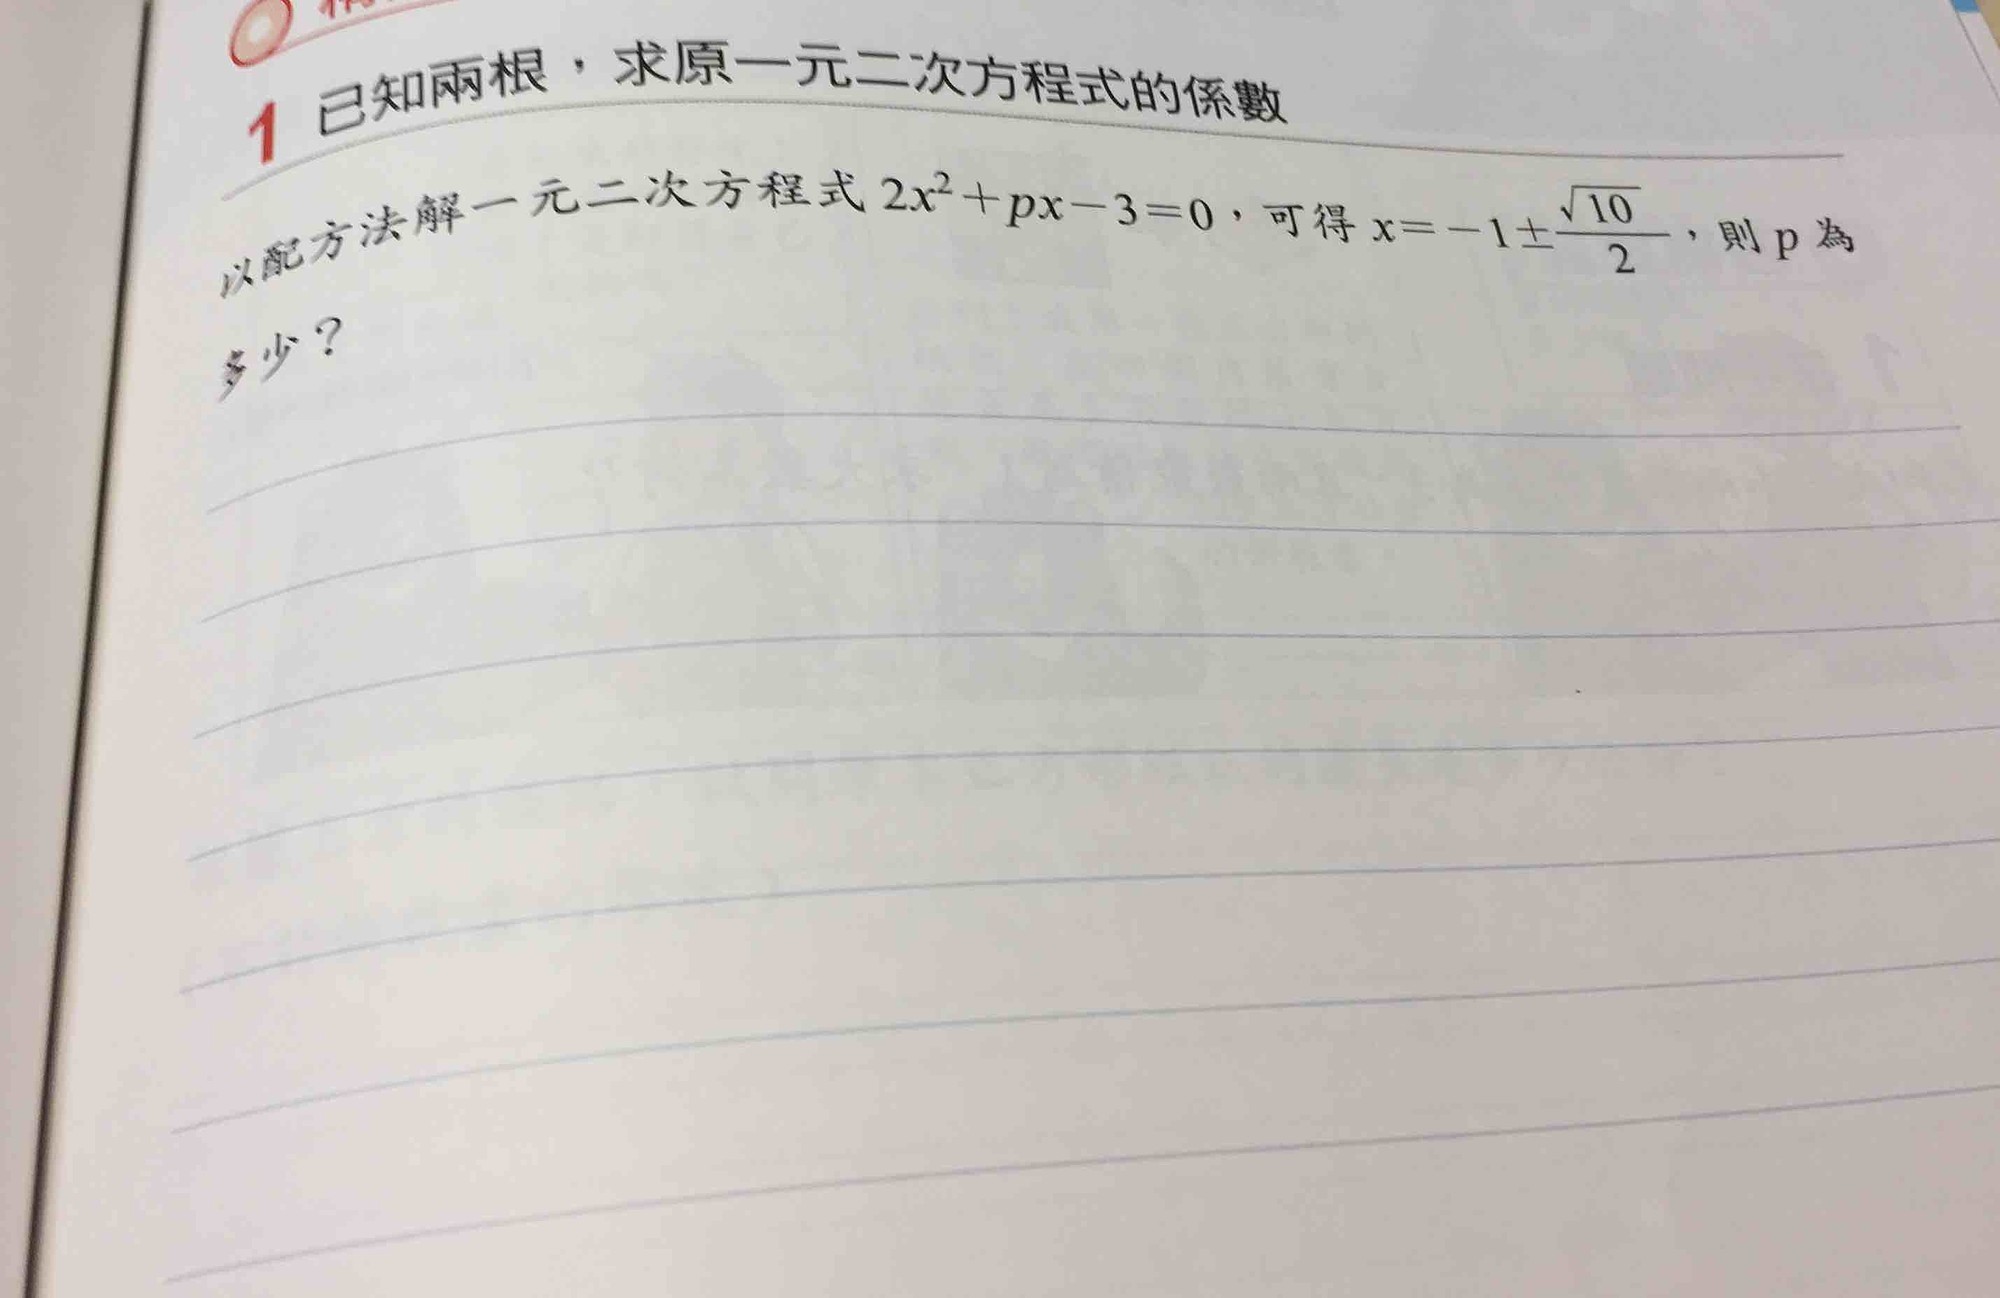 1 已知兩根，求原一元二次方程式的係數
以配方法解一元二次方程式 2x²+px−3=0，可得 x=−1±√10/2，則 p 為
多少？